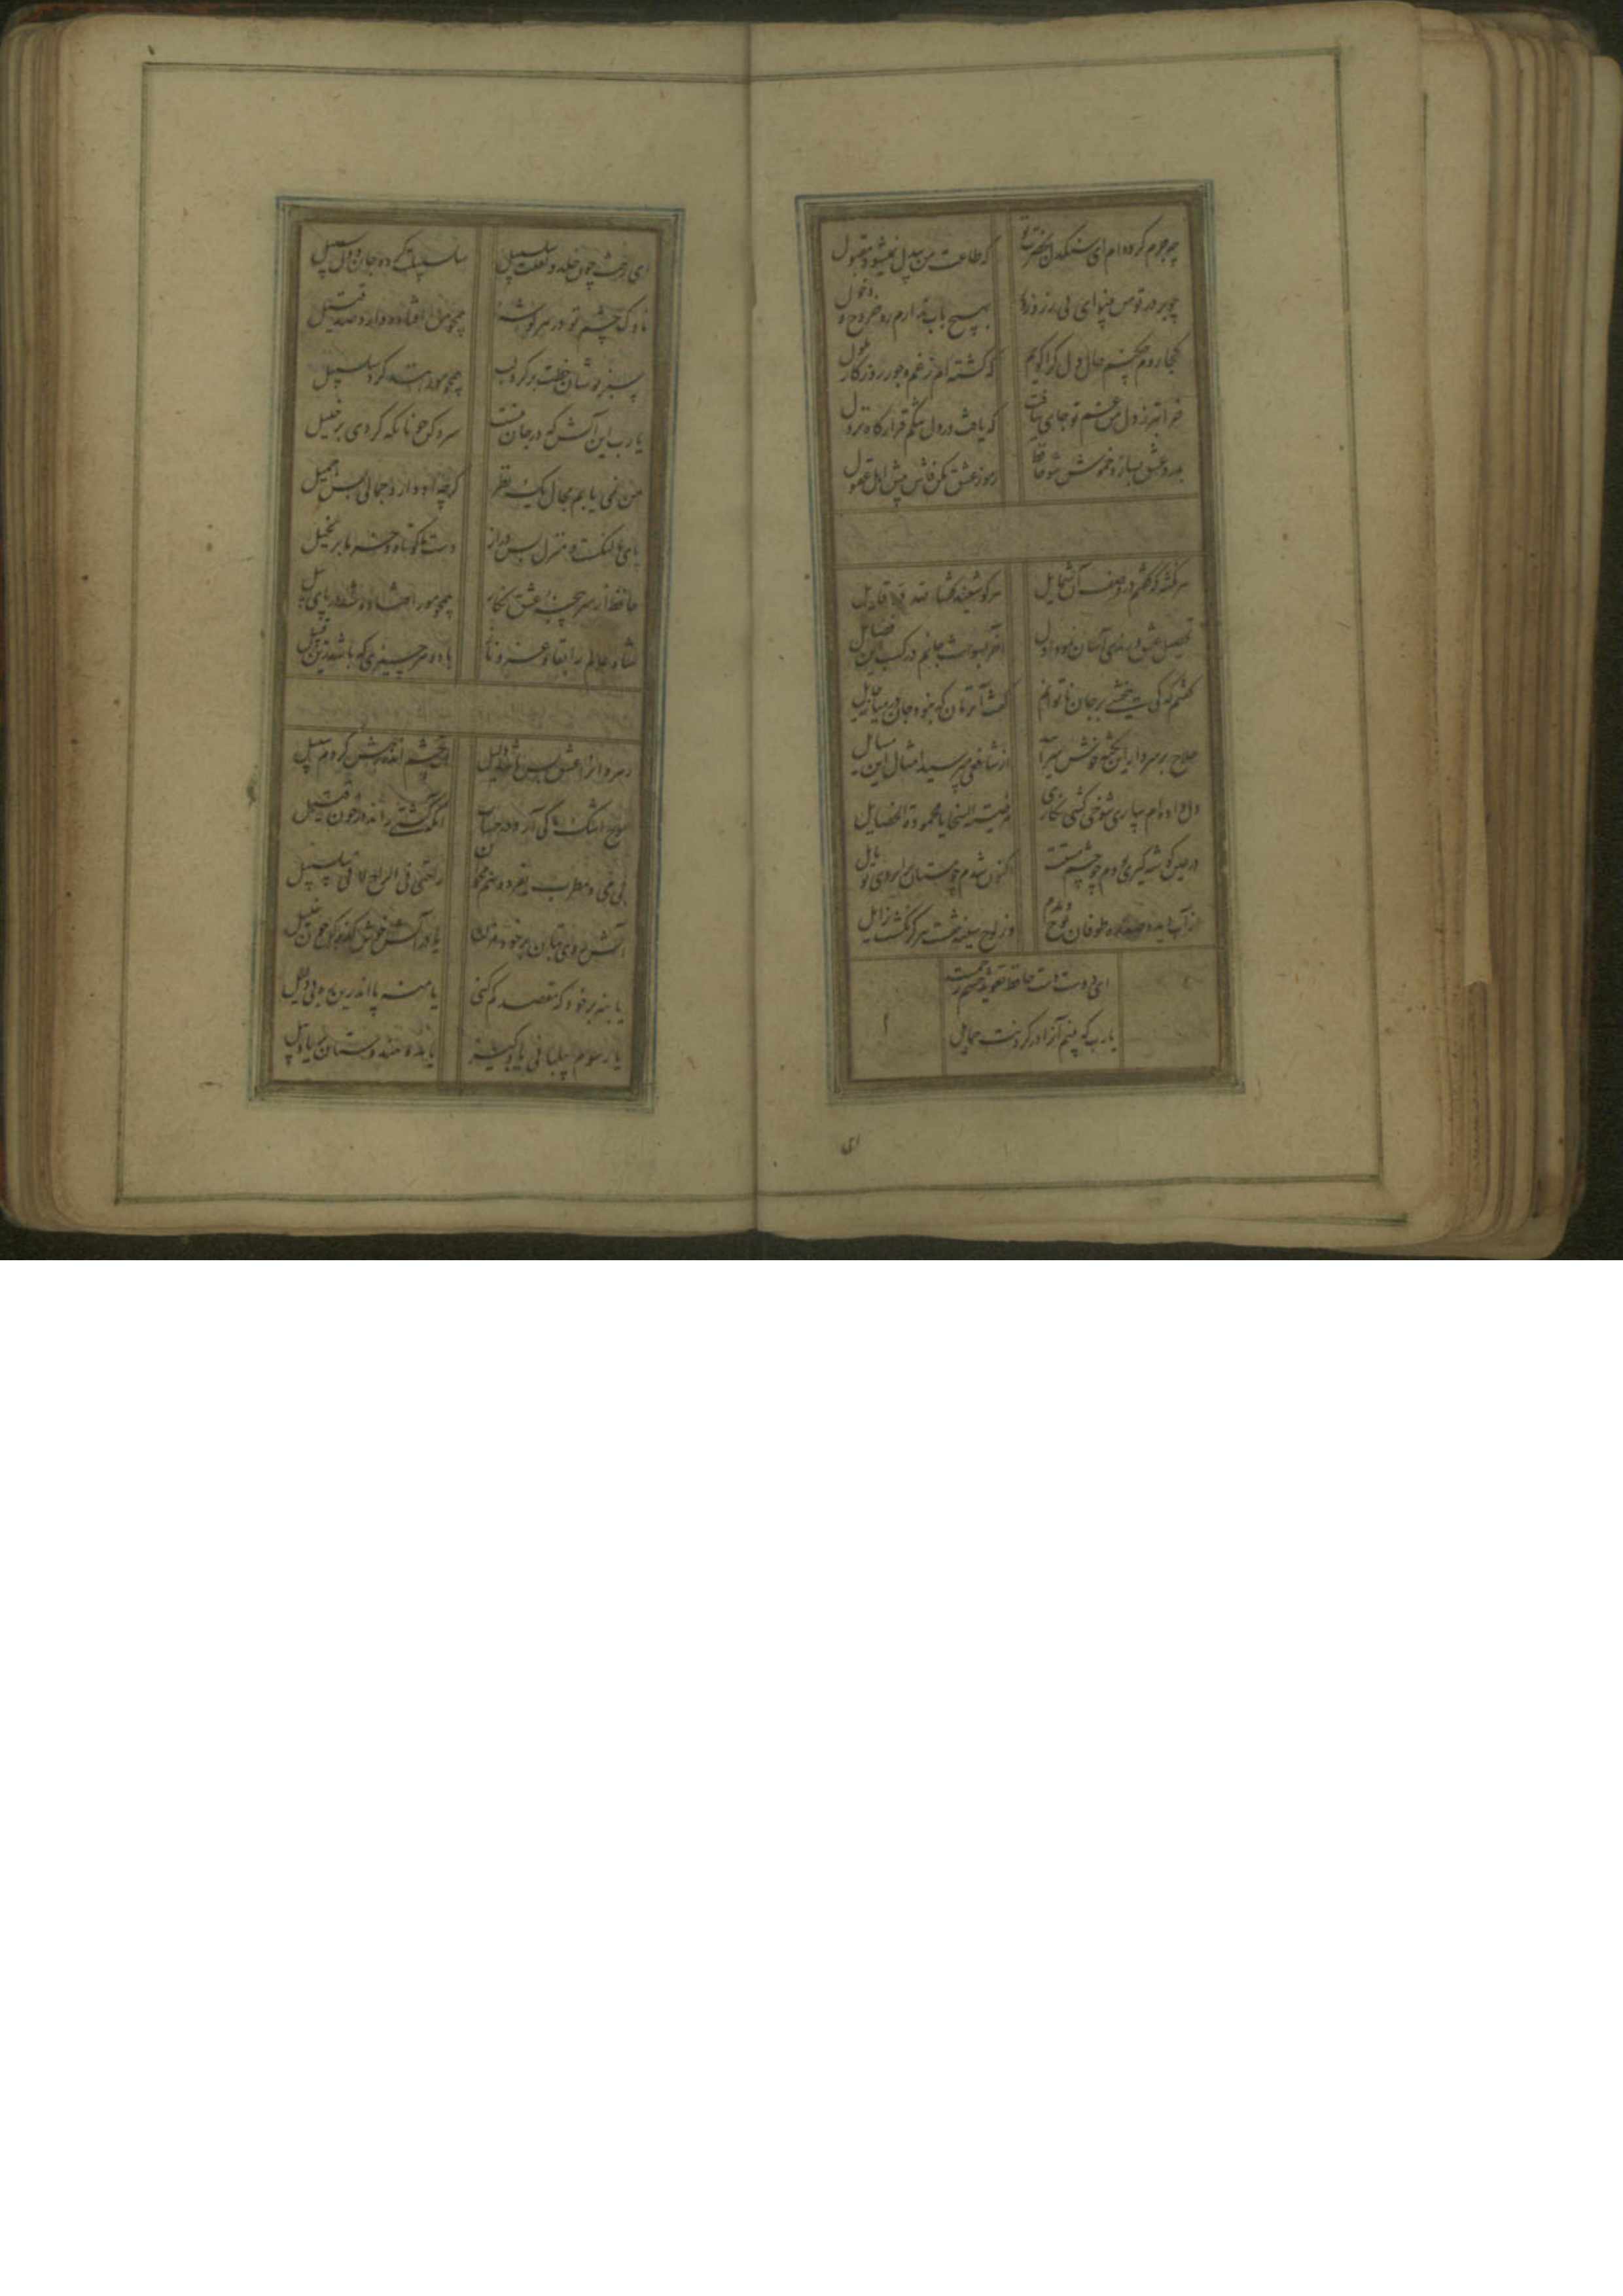 چه جرم کرده‌ام ای سنگدل بحضرت تو
که طاعت من بیدل نمیشود مقبول
چو بر در تو من بینوای بی زر و زور
بهیچ باب ندارم ره خروج و دخول
کجا روم چکنم حال دل کرا گویم
که گشته‌ام ز غم و جور روزگار ملول
خرابتر ز دل من غم تو جای نیافت
که یافت در دل تنگم قرارگاه نزول
بدرد عشق بساز و خموش شو حافظ
رموز عشق مکن فاش پیش اهل عقول
هر نکته که گفتم در وصف آن شمایل
هر کو شنید گفتا لله در قایل
تحصیل عشق و رندی آسان نمود اول
آخر بسوخت جانم در کسب این فضایل
گفتم که کی ببخشی بر جان ناتوانم
گفت آنزمان که نبود جان در میانه حایل
حلاج بر سر دار این نکته خوش سراید
از شافعی نپرسید امثال این مسایل
دل داده‌ام بیاری شوخی کشی نگاری
مرضیة السجایا محمودة الخصایل
در عین گوشه گیری بودم چو چشم مستت
اکنون شدم چو مستان بر ابروی تو مایل
از آب دیده صد ره طوفان نوح دیدم
وز لوح سینه نقشت هرگز نگشت زایل
ای دوست دست حافظ تعویذ چشم زخمست
یارب که بینم آنرا در گردنت حمایل
ای
ای رخت چون خلد و لعلت سلسبیل
سلسبیلت کرده جان و دل سبیل
ناوک چشم تو در هر گوشه
همچو من افتاده دارد صد قتیل
سبزپوشان خطت بر گرد لب
همچو مورانند گرد سلسبیل
یارب این آتش که در جان منست
سرد کن چونانکه کردی بر خلیل
من نمی‌یابم مجال یک نظر
گرچه او دارد جمالی بس جمیل
پای ما لنگست و منزل بس دراز
دست ما کوتاه و خرما بر نخیل
حافظ از سرپنجه عشق نگار
همچو مور افتاده شد در پای پیل
شاه عالم را بقا و عز و ناز
باد و هر چیزی که باشد زین قبیل
رهروانرا عشق بس باشد دلیل
آب چشم اندر رهش کردم سبیل
موج اشک ما کی آرد در حساب
آنکه کشتی راند در خون قتیل
بی می و مطرب بفردوسم مخوان
راحتی فی الراح لا فی السلسبیل
آتش روی بتان بر خود مزن
یا در آتش خوش گذر کن چون خلیل
یا بنه بر خود که مقصد گم کنی
یا منه پا اندرین ره بی دلیل
یا رسوم پیلبانی یاد گیر
یا مده هندوستان را یاد پیل